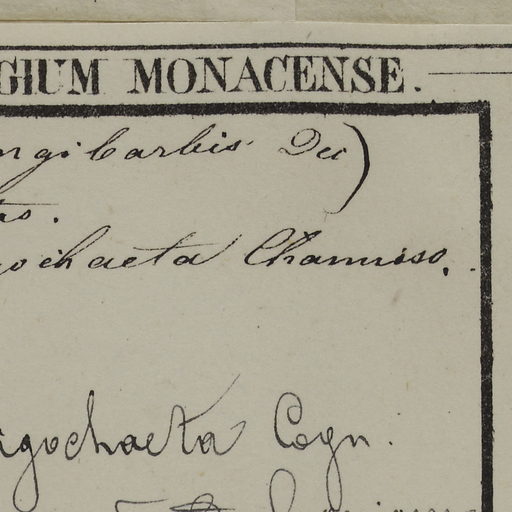 GIUM MONACENSE.
ngibarbis Dec)
us.
ochaeta Chamisso.
igochaeta Cogn.